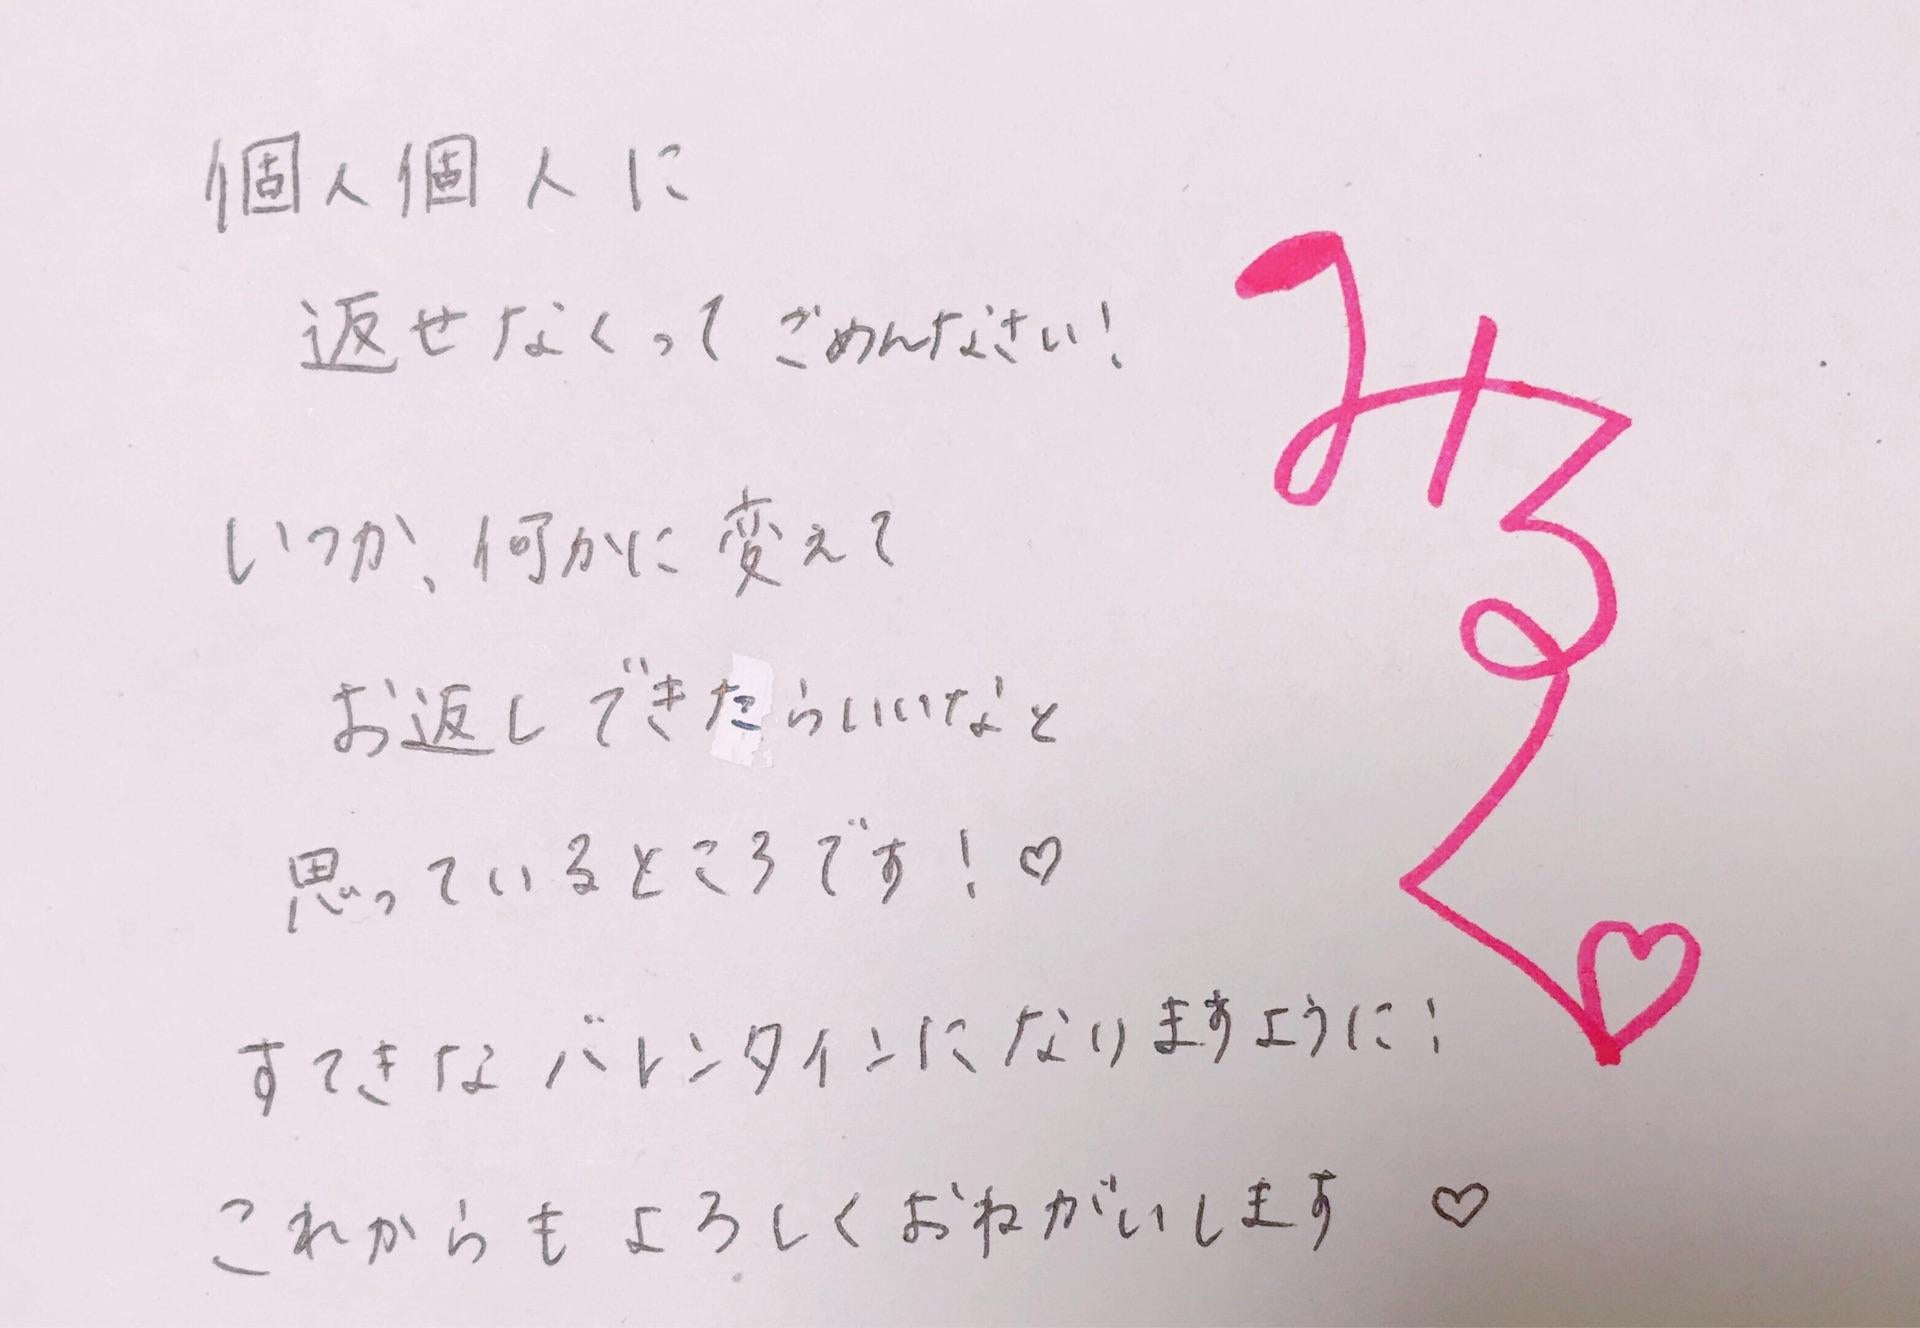 個人個人に
返せなくってごめんなさい!
いつか、何かに変えて
お返しできたらいいなと
思っているところです!♡
すてきなバレンタインになりますように!
これからもよろしくおねがいします ♡
みるく♡